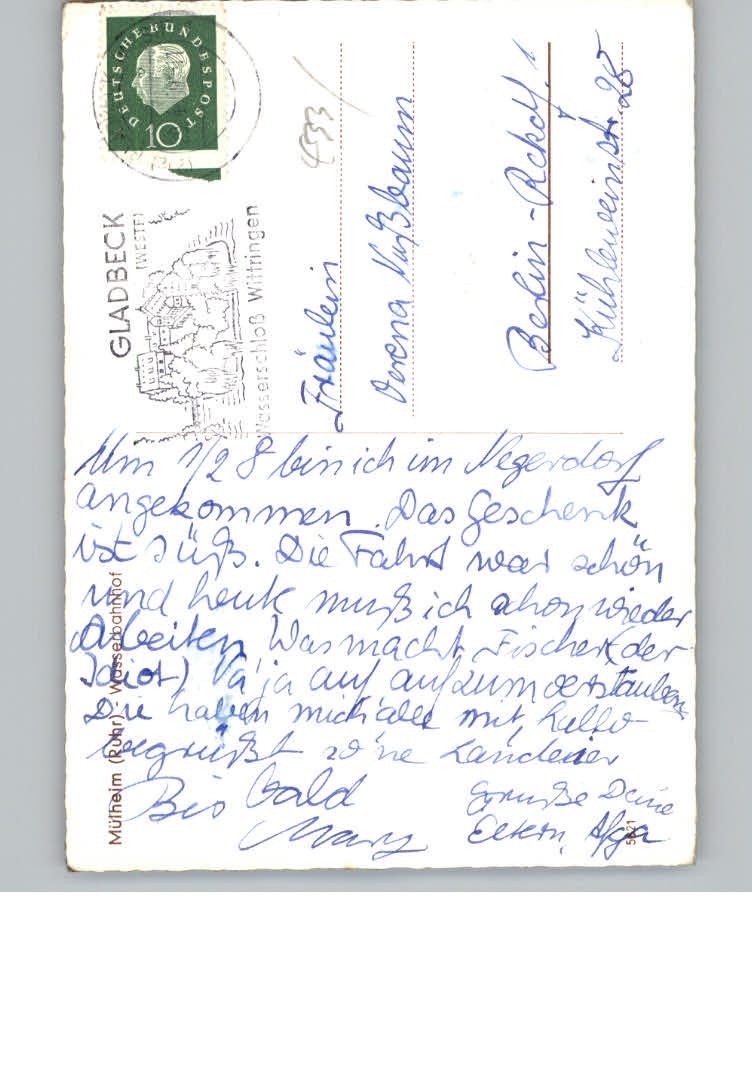 DEUTSCHE BUNDESPOST
10
GLADBECK
(WESTF)
Wasserschloß Wittringen
433
Fräulein
Verena Nußbaum
Berlin - Rckdf. 1
Kühleweinstr. 28
Um 1/2 8 bin ich im Negerdorf
angekommen. Das Geschenk
ist süß. Die Fahrt war schön
und heute muß ich schon wieder
Arbeiten. Was macht Fischer (der
Idiot) Na ja auf auf zum
Die haben mich alle mit, hallo
begrüßt so 'ne Landeier
Bis bald
Grüße Deine
Eltern,
Mülheim (Ruhr) - Wasserbahnhof